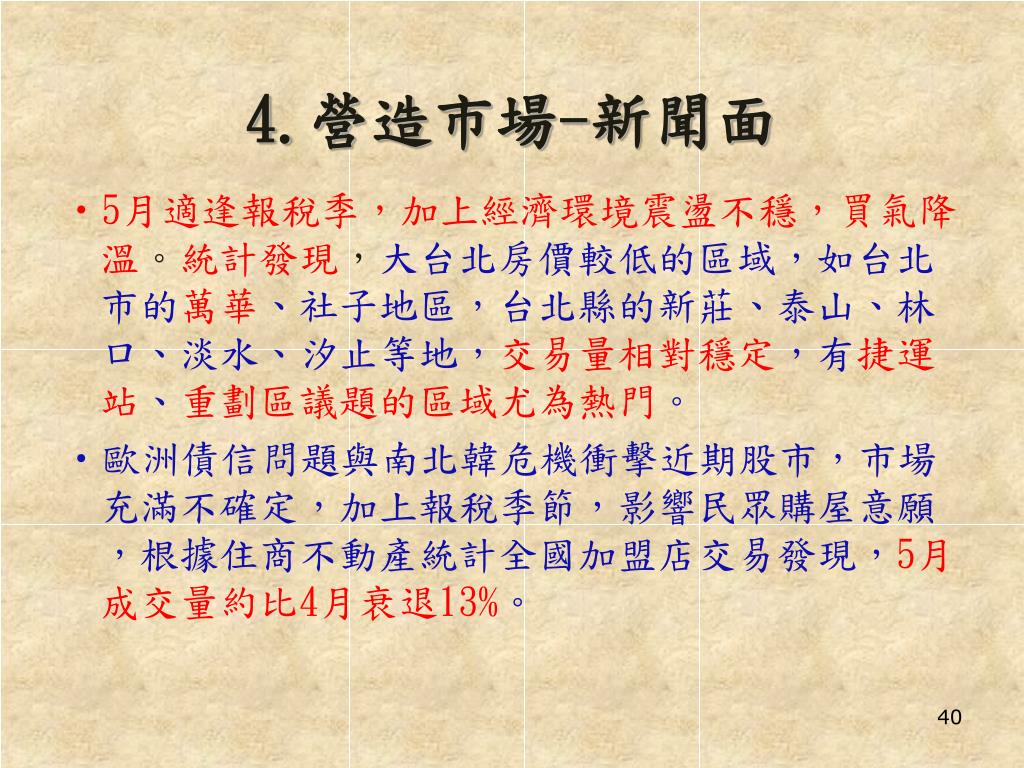 4.營造市場-新聞面
•5月適逢報稅季，加上經濟環境震盪不穩，買氣降
溫。統計發現，大台北房價較低的區域，如台北
市的萬華、社子地區，台北縣的新莊、泰山、林
口、淡水、汐止等地，交易量相對穩定，有捷運
站、重劃區議題的區域尤為熱門。
•歐洲債信問題與南北韓危機衝擊近期股市，市場
充滿不確定，加上報稅季節，影響民眾購屋意願
，根據住商不動產統計全國加盟店交易發現，5月
成交量約比4月衰退13%。
40